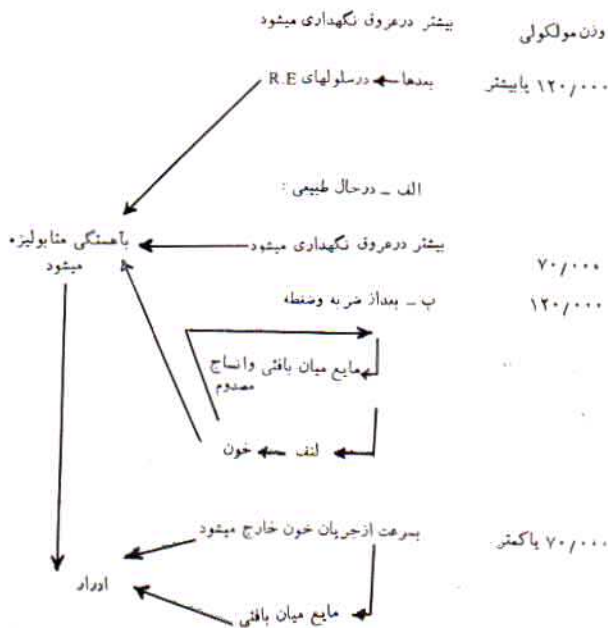 وزن مولکولی
بیشتر درعروق نگهداری میشود
۱۲۰/۰۰۰ یابیشتر
بعدها
درسلولهای R.E
الف ـ درحال طبیعی :
بیشتر درعروق نگهداری میشود
بآهستگی متابولیزه
میشود
۷۰/۰۰۰
۱۲۰/۰۰۰
پ ـ بعداز ضربه وضغطه
مایع میان بافتی وانساج
مصدوم
لنف
خون
۷۰/۰۰۰ یاکمتر
بسرعت ازجریان خون خارج میشود
ادرار
مایع میان بافتی